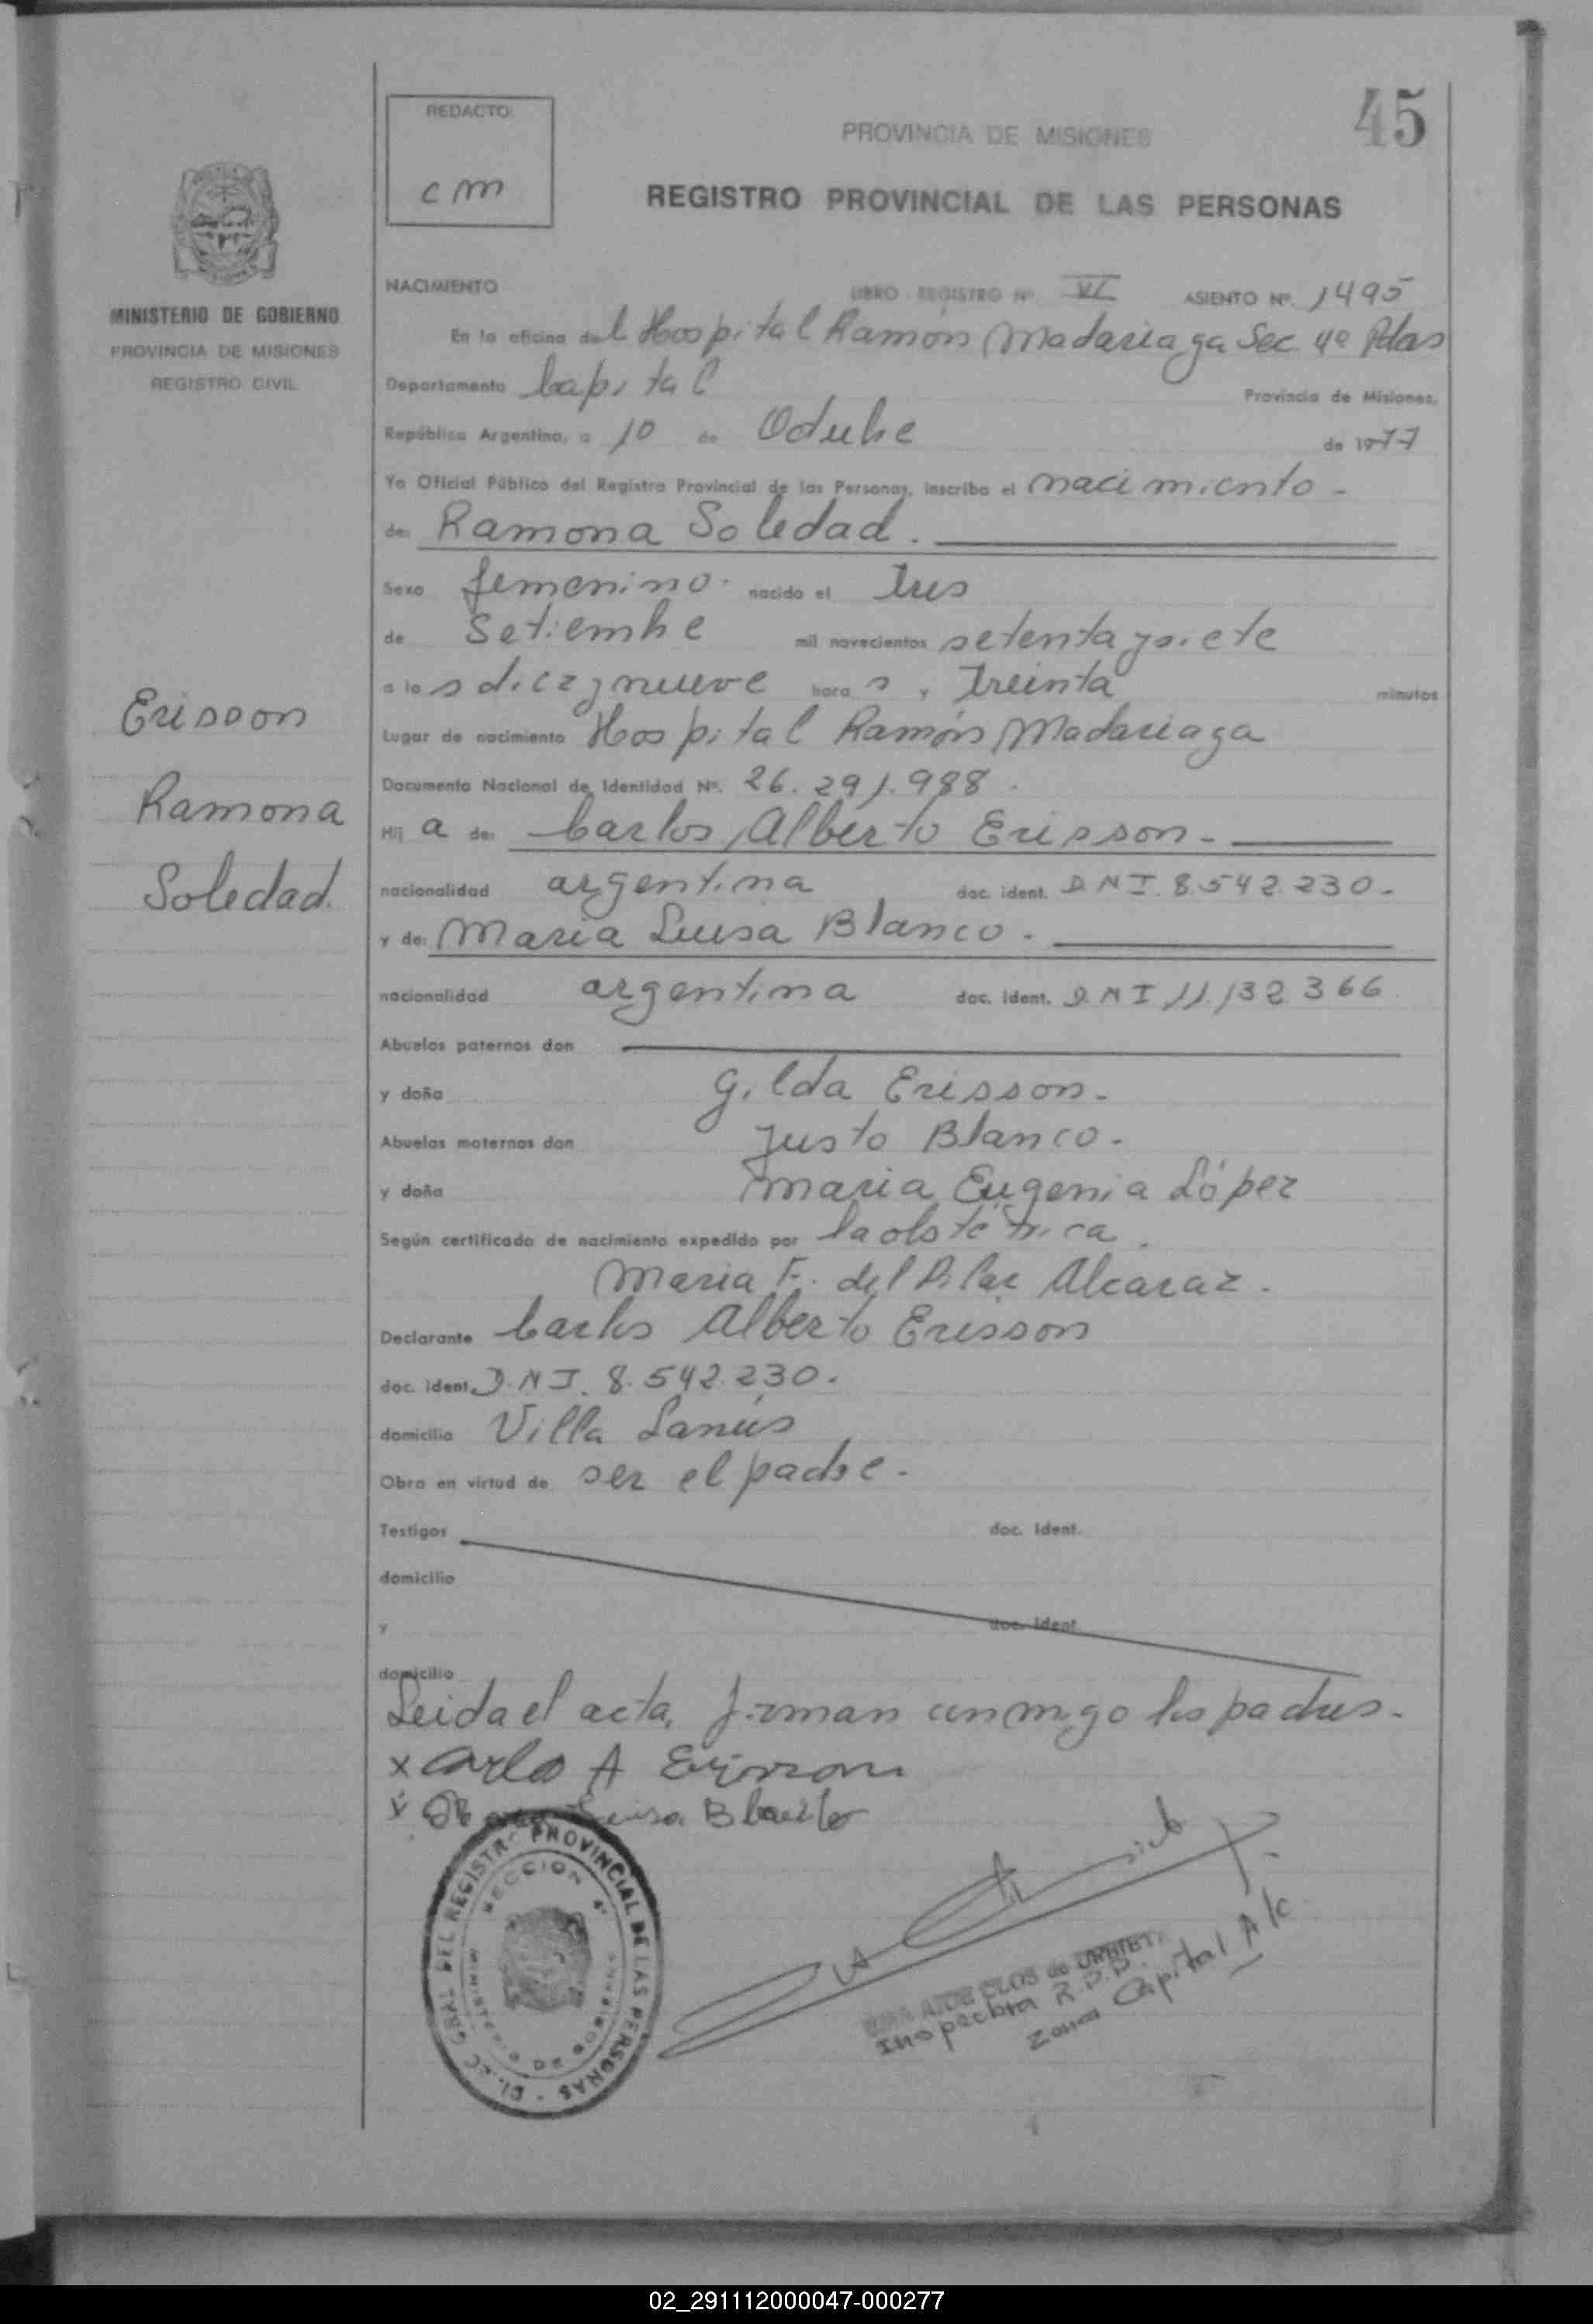 45
REDACTO:
cm
PROVINCIA DE MISIONES
REGISTRO PROVINCIAL DE LAS PERSONAS
MINISTERIO DE GOBIERNO
PROVINCIA DE MISIONES
REGISTRO CIVIL
NACIMIENTO LIBRO REGISTRO Nº VI ASIENTO Nº. 1495
En la oficina del Hospital Ramón Madariaga Sec 4º Pdas
Departamento Capital Provincia de Misiones.
República Argentina, a 10 de Octubre de 1977
Yo Oficial Público del Registro Provincial de las Personas, inscribo el nacimiento -
de: Ramona Soledad.
Sexo femenino. nacido el tres
de Setiembre mil novecientos setenta y siete
a las diez y nueve horas y treinta minutos
Lugar de nacimiento Hospital Ramón Madariaga
Documento Nacional de Identidad Nº. 26.291.988.
Hija de: Carlos Alberto Erisson.-
nacionalidad argentina doc. ident. D.N.I. 8.542.230-
y de: Maria Luisa Blanco.
nacionalidad argentina doc. ident. D.N.I 11.132.366
Abuelos paternos don
y doña Gilda Erisson.
Abuelos maternos don Justo Blanco.
y doña Maria Eugenia López
Según certificado de nacimiento expedido por la obstétrica.
Maria F. del Pilar Alcaraz.
Declarante Carlos Alberto Erisson
doc. ident. D.N.I. 8.542.230.
domicilio Villa Lanús
Obra en virtud de ser el padre.
Testigos doc. ident.
domicilio
y doc. ident.
domicilio
Leida el acta, firman conmigo los padres.
x Carlos A Erisson
x Luisa Blanco
Erisson
Ramona
Soledad.
DEL REGISTRO PROVINCIAL DE LAS PERSONAS
SECCION 4ª
CLOS de URBIETA
Inspectora R.P.P.
Zona Capital A/c
02_291112000047-000277